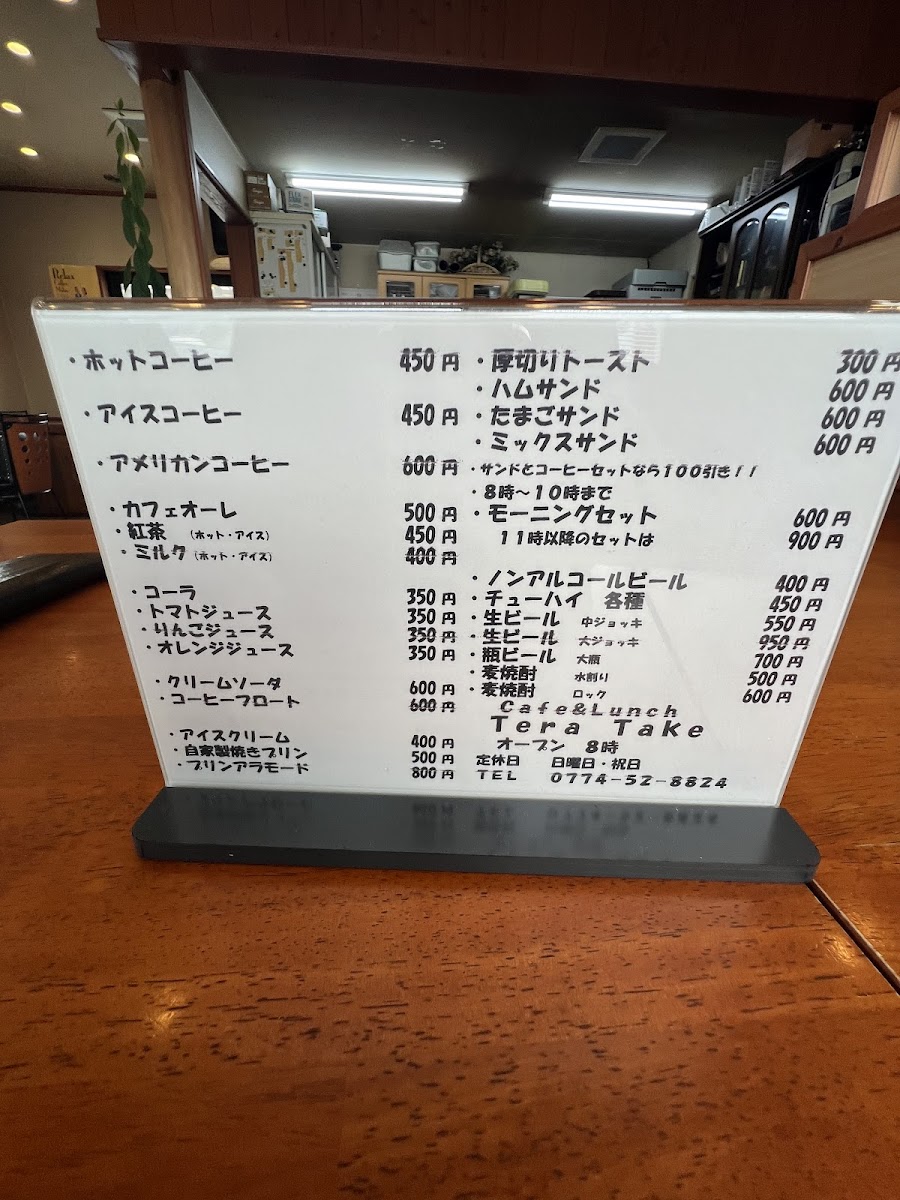 ・ホットコーヒー 450円
・アイスコーヒー 450円
・アメリカンコーヒー 600円
・カフェオーレ 500円
・紅茶 (ホット・アイス) 450円
・ミルク (ホット・アイス) 400円
・コーラ 350円
・トマトジュース 350円
・りんごジュース 350円
・オレンジジュース 350円
・クリームソーダ 600円
・コーヒーフロート 600円
・アイスクリーム 400円
・自家製焼きプリン 500円
・プリンアラモード 800円
・厚切りトースト 300円
・ハムサンド 600円
・たまごサンド 600円
・ミックスサンド 600円
・サンドとコーヒーセットなら100引き!!
・8時~10時まで
・モーニングセット 600円
11時以降のセットは 900円
・ノンアルコールビール 400円
・チューハイ 各種 450円
・生ビール 中ジョッキ 550円
・生ビール 大ジョッキ 950円
・瓶ビール 大瓶 700円
・麦焼酎 水割り 500円
・麦焼酎 ロック 600円
Cafe&Lunch
Tera Take
オープン 8時
定休日 日曜日・祝日
TEL 0774-52-8824
Relax